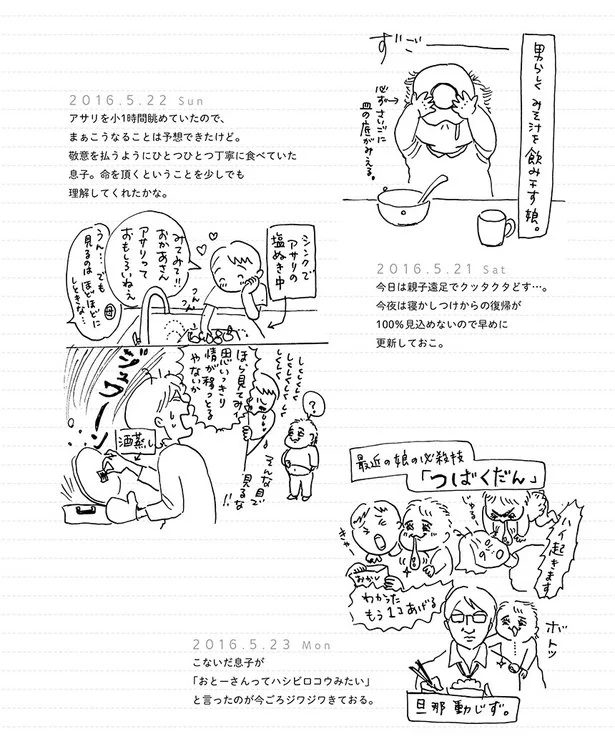 ずごーーー
男らしく みそ汁を飲み干す娘。
必ずさいごに
皿の底がみえる。
2016.5.22 Sun
アサリを小1時間眺めていたので、
まぁこうなることは予想できたけど。
敬意を払うようにひとつひとつ丁寧に食べていた
息子。命を頂くということを少しでも
理解してくれたかな。
シンクで
アサリの
塩ぬき中
みてみて!!
おかあさん
アサリって
おもしろいねえ
つんつん
うん…でも
見るのは
ほどほどに
しときな…
母
2016.5.21 Sat
今日は親子遠足でクッタクタどす…。
今夜は寝かしつけからの復帰が
100%見込めないので早めに
更新しておこ。
ジュワーン
酒蒸し
ほら見てみィ
思いっきり
情が移っとる
やないか
しくしくしくしく
しくしくしく
?
そんな目で
見るな!!
最近の娘の必殺技
「つばくだん」
じゅる
ハイ起きます
きゃー
みかん
わかった
もう1コあげる
ボトッ
旦那動じず。
2016.5.23 Mon
こないだ息子が
「おとーさんってハシビロコウみたい」
と言ったのが今ごろジワジワきておる。